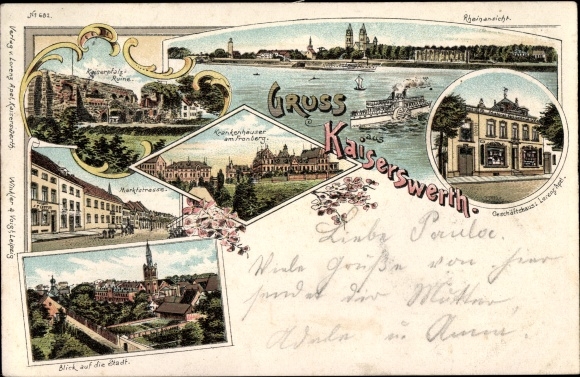 No 682.
Rheinansicht.
Kaiserpfalz-
Ruine.
GRUSS
aus
KAISERSWERTH.
Krankenhäuser
am Fronberg.
Marktstrasse.
Geschäftshaus:
Blick auf die Stadt.
Verlag v.
Kaiserswerth.
Winkler & Voigt, Leipzig
Liebe Paula.
Viele Grüße von hier
sendet dir Mutter,
Adele u. Anna.